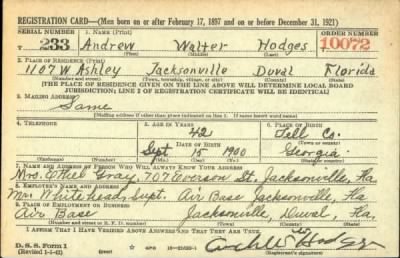 REGISTRATION CARD—(Men born on or after February 17, 1897 and on or before December 31, 1921)
SERIAL NUMBER 1. NAME (Print) ORDER NUMBER
V 233 Andrew Walter Hodges 10072
(First) (Middle) (Last)
2. PLACE OF RESIDENCE (Print)
1107 W. Ashley Jacksonville Duval Florida
(Number and street) (Town, township, village, or city) (County) (State)
[THE PLACE OF RESIDENCE GIVEN ON THE LINE ABOVE WILL DETERMINE LOCAL BOARD
JURISDICTION; LINE 2 OF REGISTRATION CERTIFICATE WILL BE IDENTICAL]
3. MAILING ADDRESS
Same
[Mailing address if other than place indicated on line 2. If same insert word same]
4. TELEPHONE 5. AGE IN YEARS 6. PLACE OF BIRTH
42 Co.
DATE OF BIRTH
Sept 15 1900 Georgia
(Exchange) (Number) (Mo.) (Day) (Yr.) (State or country)
7. NAME AND ADDRESS OF PERSON WHO WILL ALWAYS KNOW YOUR ADDRESS
Mrs. Ethel Gray, 707 St. Jacksonville, Fla
8. EMPLOYER'S NAME AND ADDRESS
Supt. Air Base Jacksonville, Fla
9. PLACE OF EMPLOYMENT OR BUSINESS
Air Base Jacksonville, Duval, Fla.
(Number and street or R. F. D. number) (Town) (County) (State)
I AFFIRM THAT I HAVE VERIFIED ABOVE ANSWERS AND THAT THEY ARE TRUE.
D. S. S. Form 1
(Revised 1-1-42) (over) (Registrant's signature)